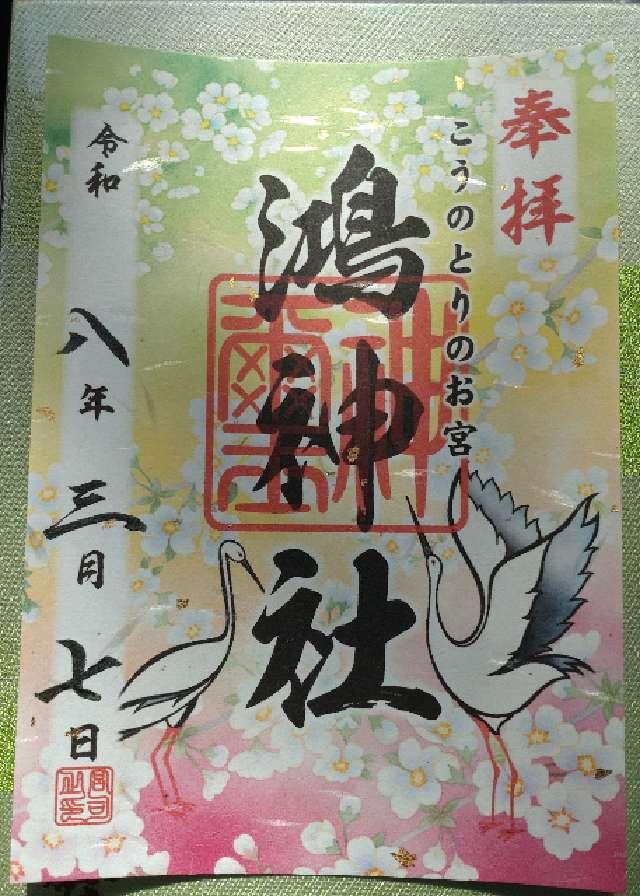 奉拝
こうのとりのお宮
鴻神社
令和八年三月七日